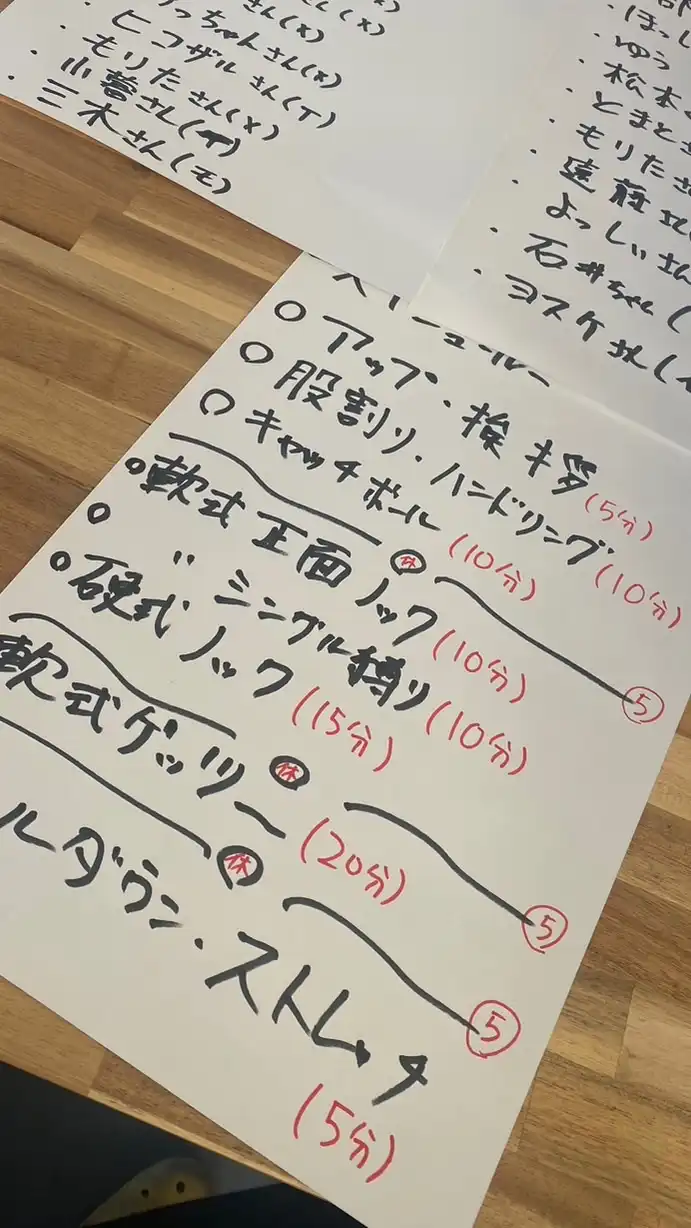 さん(x)
っちゃんさん(x)
・ヒコザルさん(T)
・もりたさん(x)
・小暮さん(T)
・三木さん(モ)
・ほっし
・ゆう
・松本
・とまとさ
・もりたさ
・遠藤さん
・よっしぃさん
・石井ちゃん(
・ヨスケさん(
スケジュール
○アップ・挨拶(5分)
○股割り・ハンドリング(10分)
○キャッチボール(10分)
休 ⑤
○軟式正面ノック(10分)
○〃シングル縛り(10分)
○硬式ノック(15分)
休 ⑤
軟式ゲッツー(20分)
休 ⑤
ルダウン・ストレッチ(5分)